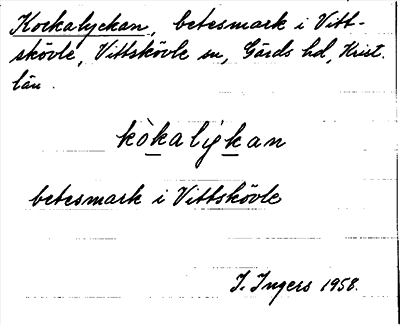 Kockalyckan, betesmark i Vitt-
skövle, Vittskövle sn, Gärds hd, Krist.
län.
kòkalykan
betesmark i Vittskövle
I. Ingers 1958.